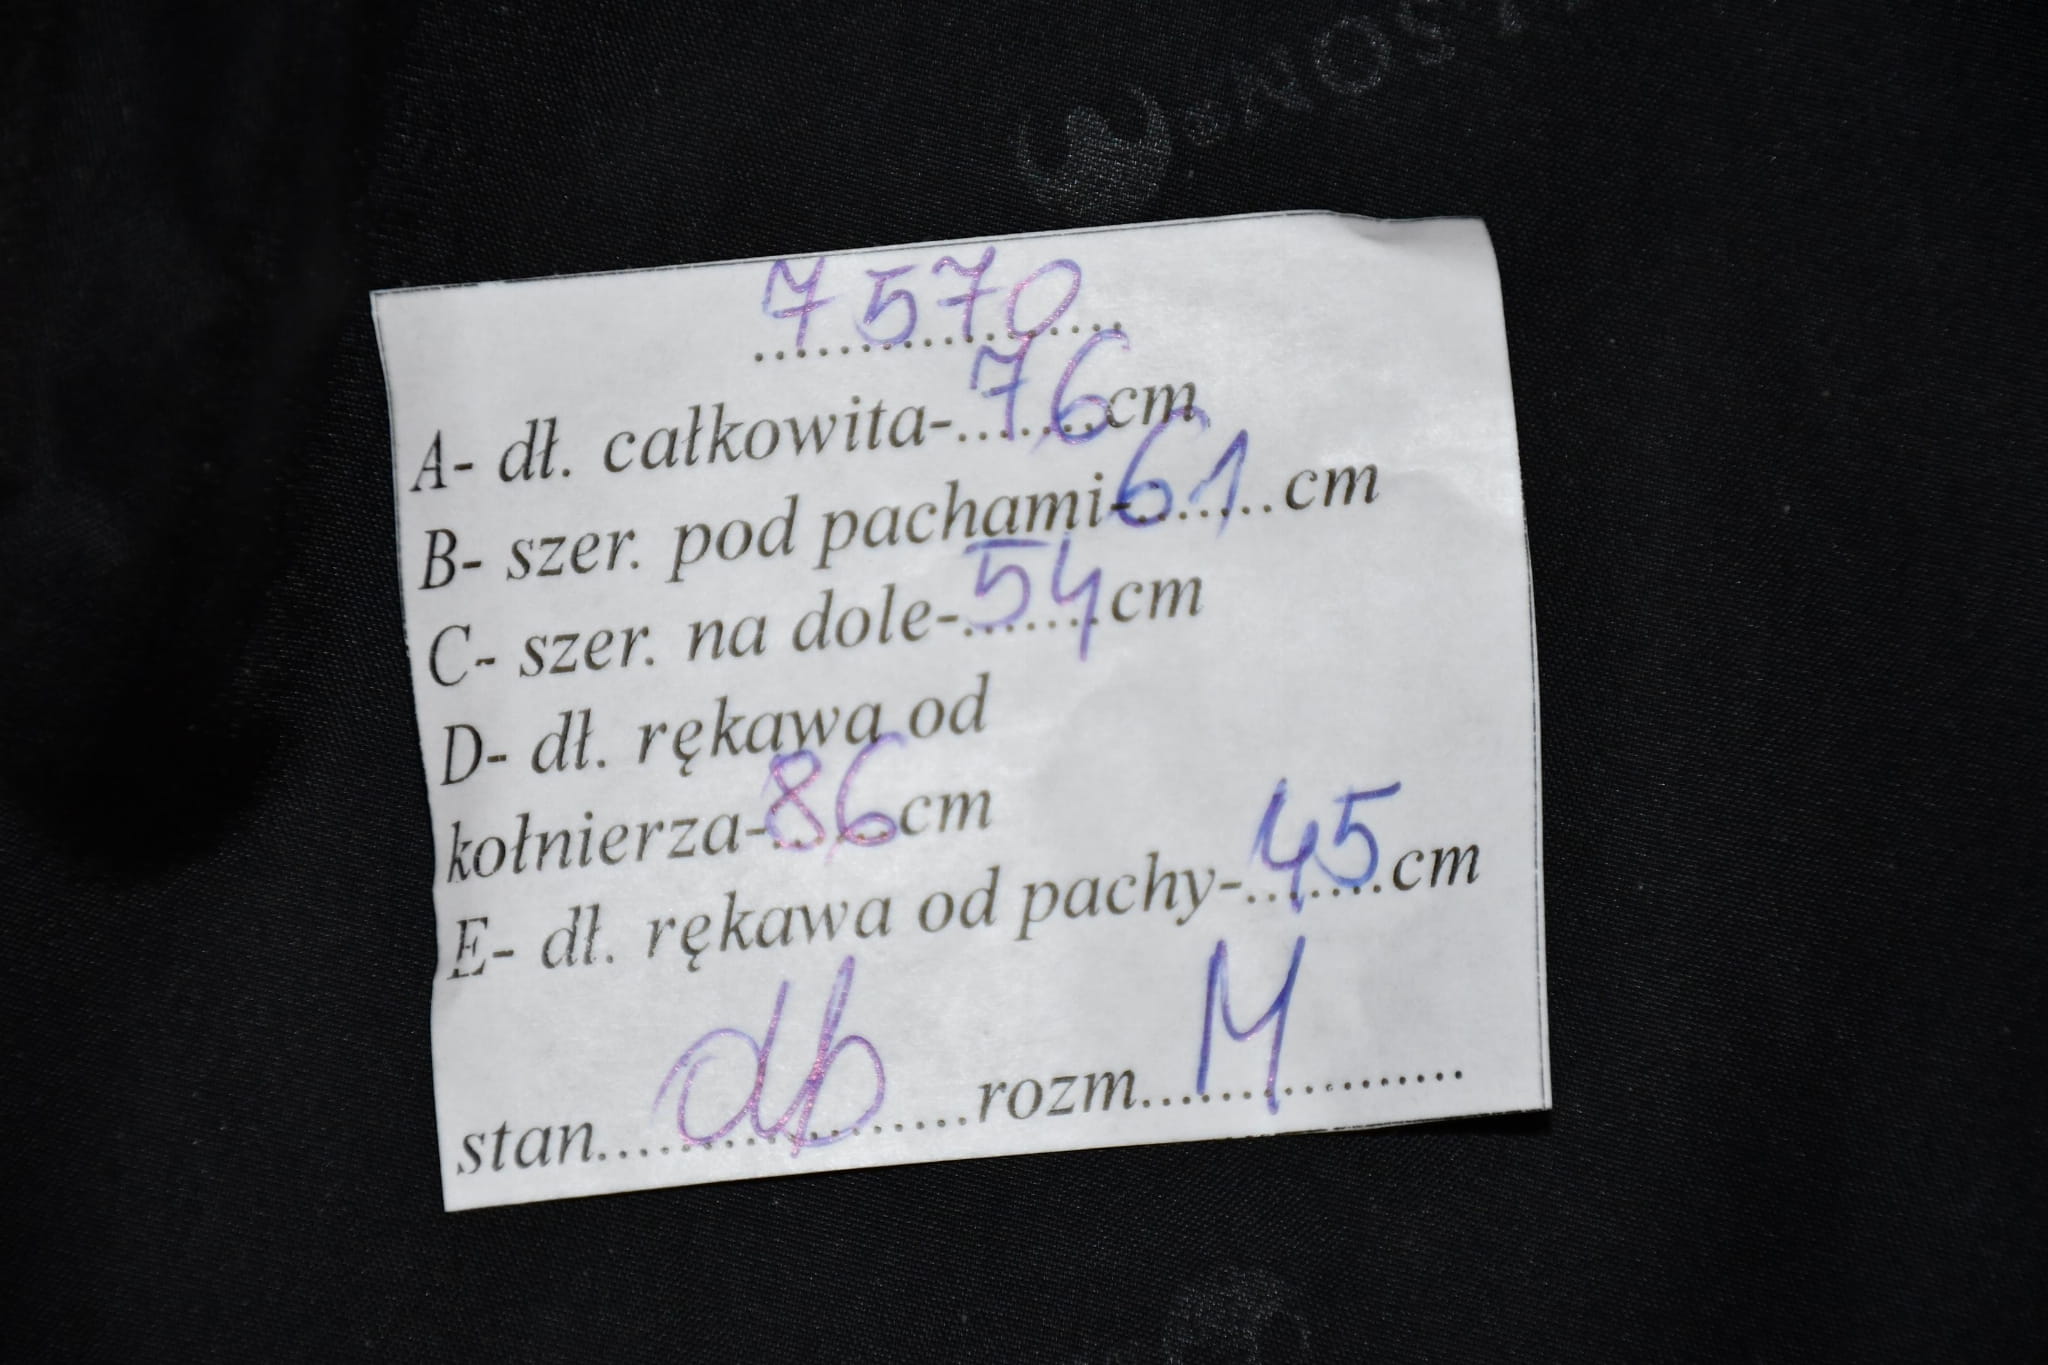 7570
A- dł. całkowita-76cm
B- szer. pod pachami-61cm
C- szer. na dole-54cm
D- dł. rękawa od
kołnierza-86cm
E- dł. rękawa od pachy-45cm
stan db rozm M